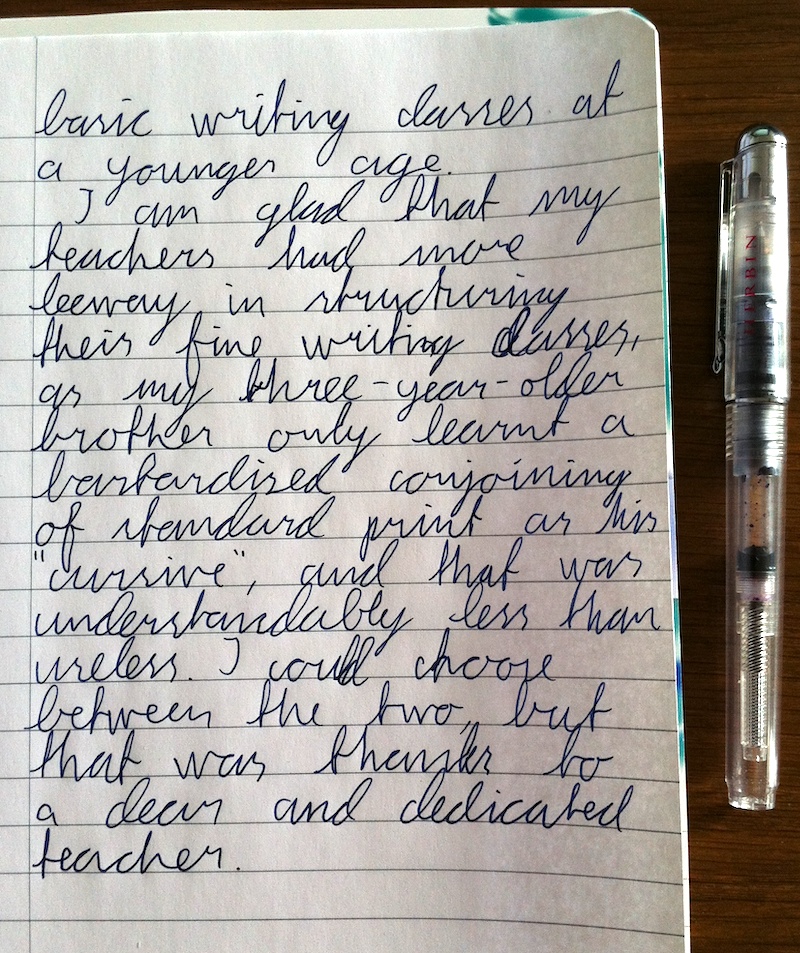 basic writing classes at
a younger age.
I am glad that my
teachers had more
leeway in structuring
their fine writing classes,
as my three-year-older
brother only learnt a
bastardised conjoining
of standard print as his
"cursive", and that was
understandably less than
useless. I could choose
between the two, but
that was thanks to
a dear and dedicated
teacher.
HERBIN